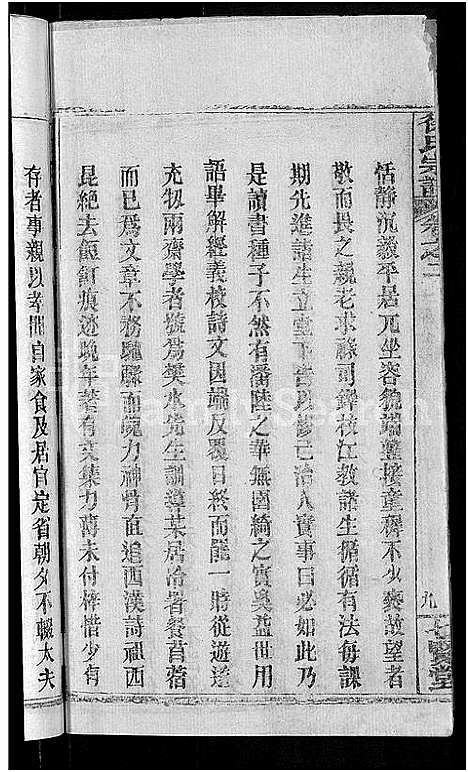 徐氏宗譜 卷之二 九 七賢堂
恬靜沉毅平居兀坐容貌端整接童穉不少褻故望者
敬而畏之親老求祿司鐸枝江教諸生循循有法每課
期先進諸生立堂下告以修己治人實事曰必如此乃
是讀書種子不然有潘陸之華無園綺之實奚益世用
語畢解經義校詩文因端反覆日終而罷一時從遊達
充牣兩齋學者號爲樊水先生訓導某居冷署餐苜蓿
而已爲文章不務馳騁而魄力神骨直追西漢詩祖西
昆絕去飣餖痕迹晚年著有文集力薄未付梓惜少有
存者事親以孝聞自家食及居官定省朝夕不輟太夫